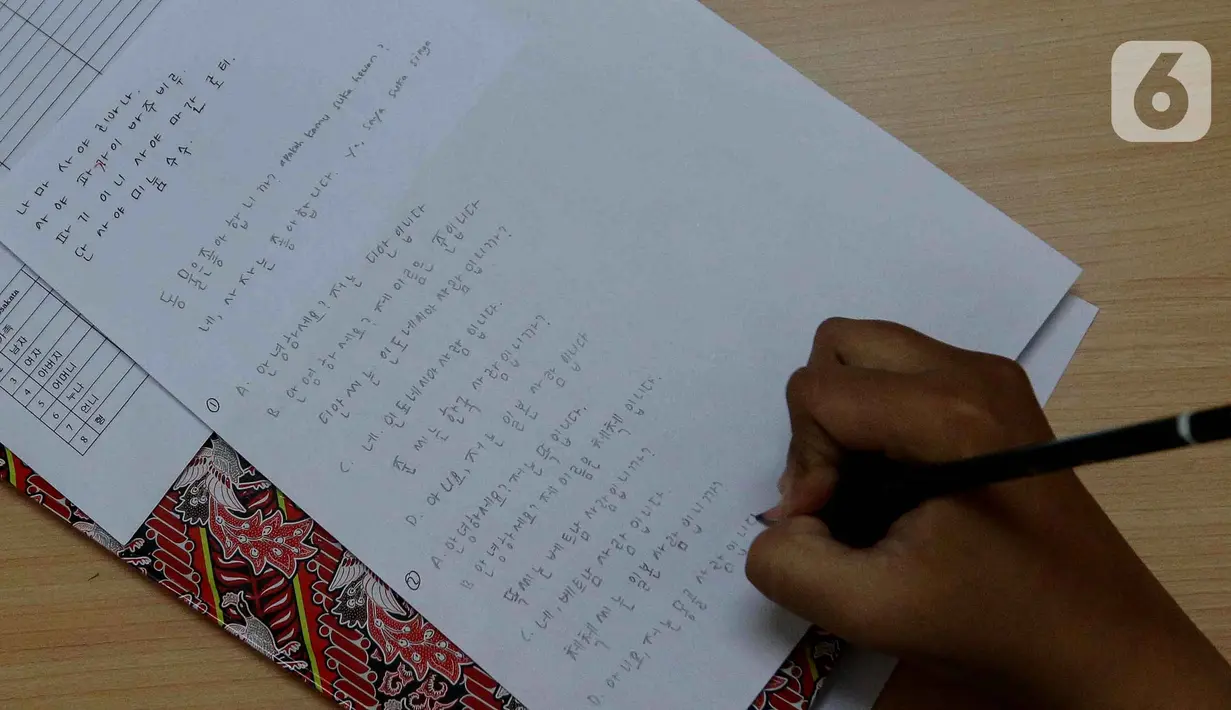 나마 사야 리아나.
사야 파카이 바주 비루.
파기 이니 사야 마칸 로티.
단 사야 미눔 수수.
동물은 좋아합니까? apakah kamu suka hewan?
네, 사자는 좋아합니다. Ya, saya suka singa
① A. 안녕하세요? 저는 디안입니다
B. 안영하세요? 제 이름은 준입니다
디안 씨는 인도네시아 사람입니까?
C. 네 인도네시아 사람입니다.
준 씨는 한국 사람입니까?
D. 아니요, 저는 일본 사람입니다
② A. 안녕하세요? 저는 뚝입니다.
B 안녕하세요? 제 이름은 체체입니다.
뚝 씨는 베트남 사람입니까?
C. 네, 베트남 사람입니다.
체체 씨는 일본 사람입니까?
D. 아니요, 저는 몽골 사람입니다
남자
3 여자
4 아버지
5 어머니
6 누나
7 언니
8 형
6